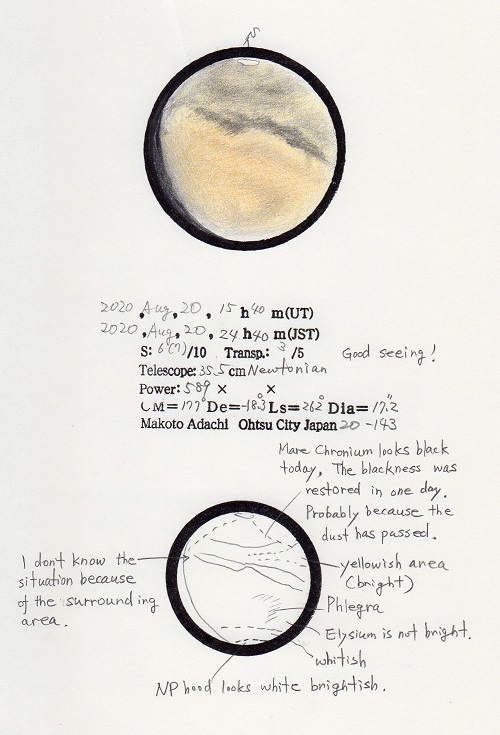 S
2020, Aug, 20, 15 h 40 m(UT)
2020, Aug, 20, 24 h 40 m(JST)
S: 6(7)/10 Transp.: 3 /5 Good seeing!
Telescope: 35.5 cm Newtonian
Power: 589 × ×
CM=177° De=-18.3° Ls=262° Dia=17.2"
Makoto Adachi Ohtsu City Japan 20-143
Mare Chronium looks black
today, The blackness was
restored in one day.
Probably because the
dust has passed.
I don't know the
situation because
of the surrounding
area.
yellowish area
(bright)
Phlegra
Elysium is not bright.
whitish
NP hood looks white brightish.